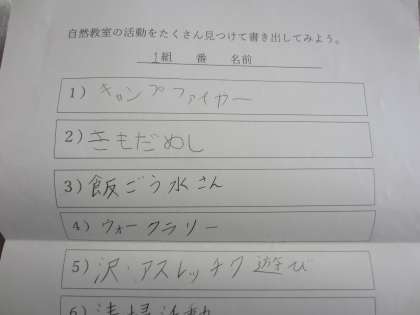 自然教室の活動をたくさん見つけて書き出してみよう。
1組 番 名前
1) キャンプファイヤー
2) きもだめし
3) 飯ごう水さん
4) ウォークラリー
5) 沢・アスレッチク遊び
6) 清掃活動